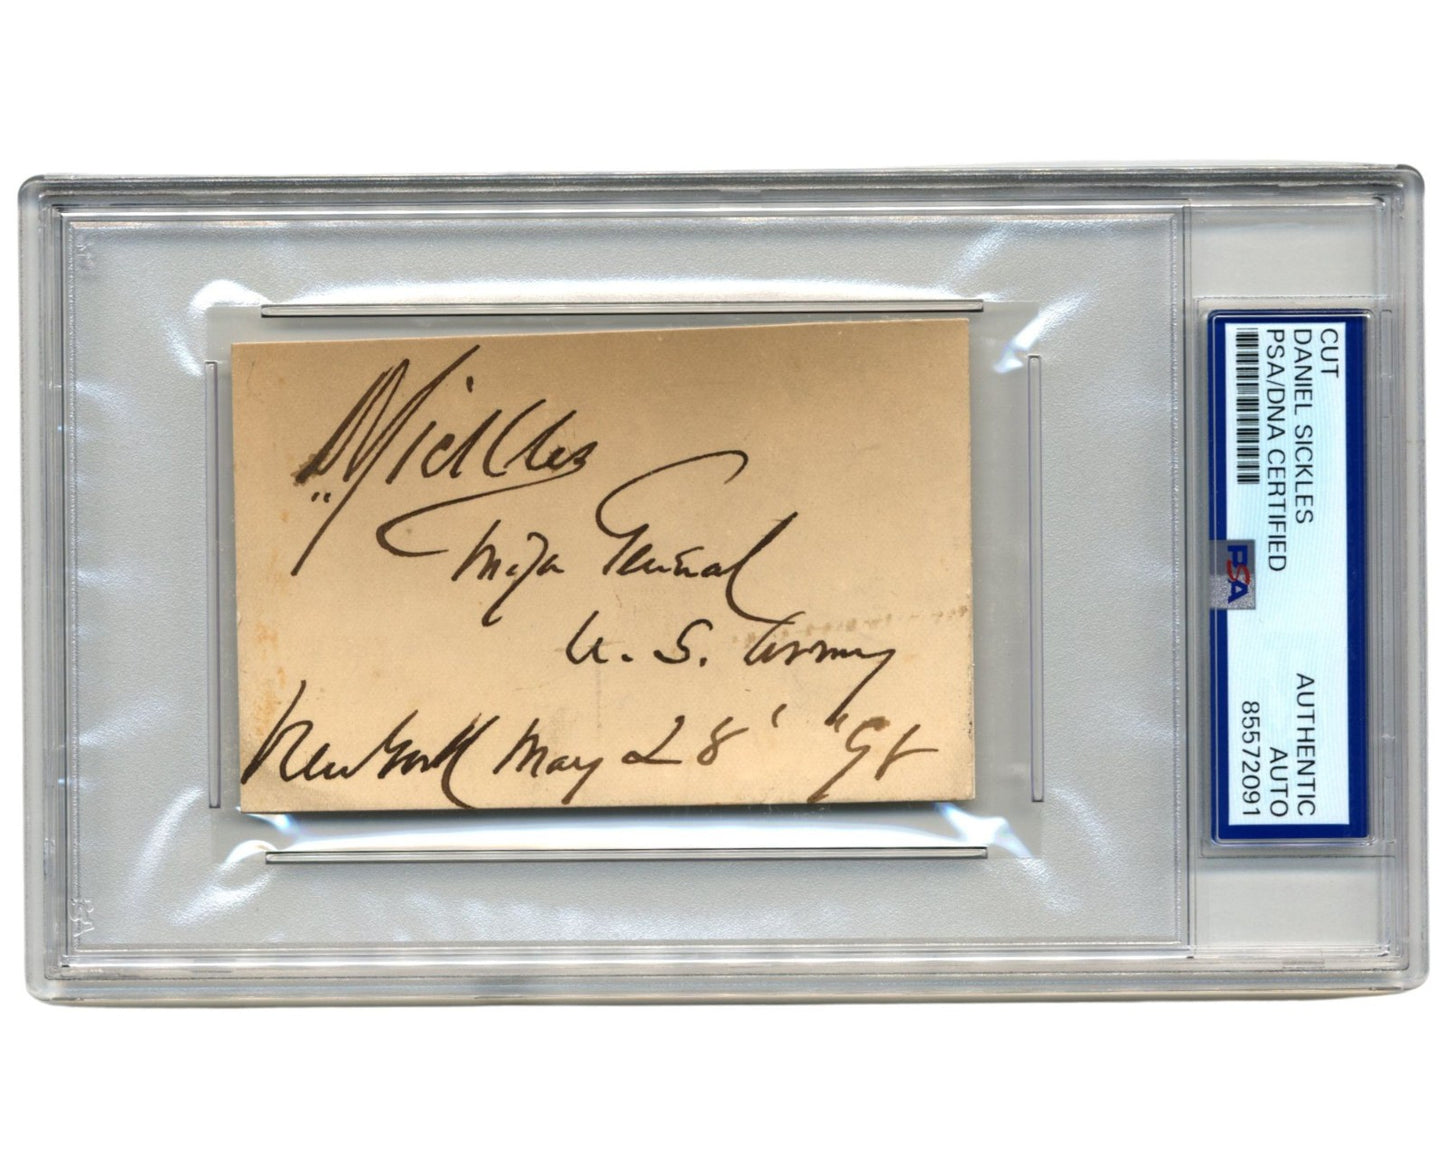 DSickles
Major General
U. S. Army
New York May 28' "98
CUT
DANIEL SICKLES
PSA/DNA CERTIFIED
AUTHENTIC
AUTO
85572091
PSA
PSA